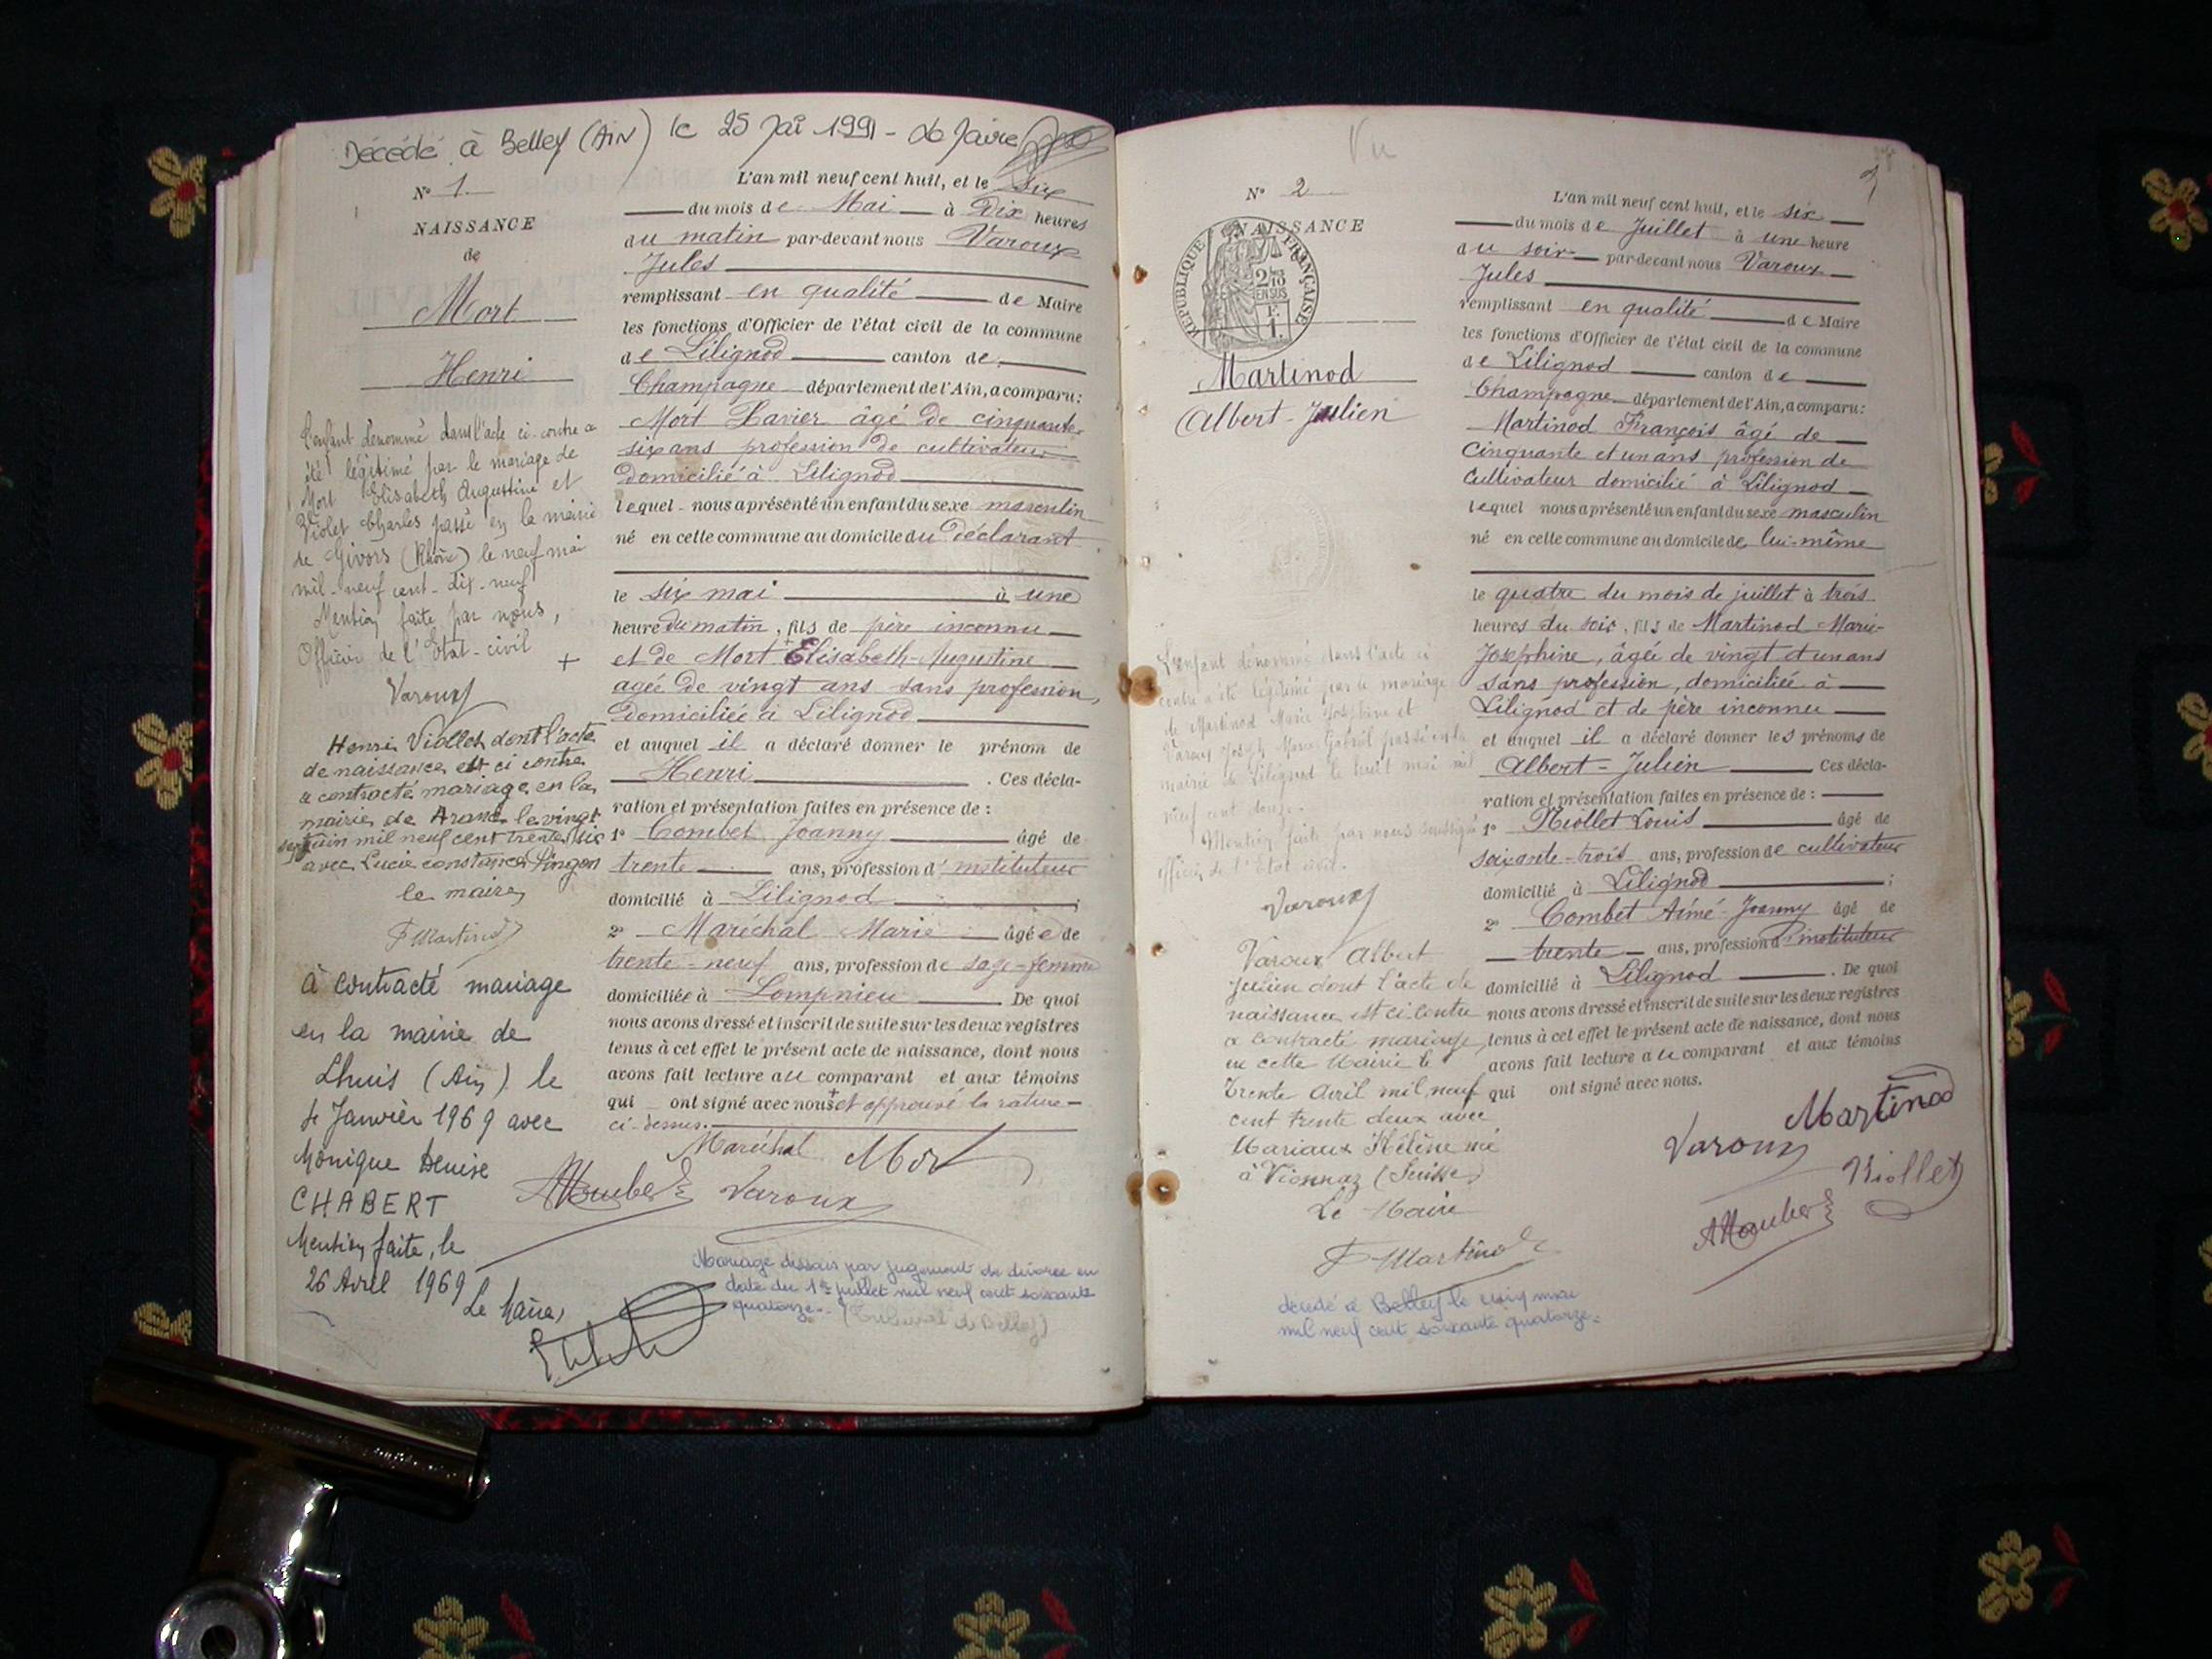 Décédé à Belley (Ain) le 25 Mai 1991 - Le Maire
N° 1
NAISSANCE
de
Mort
Henri
L'enfant dénommé dans l'acte ci-contre a
été légitimé par le mariage de
Mort Elisabeth Augustine et
Violet Charles passé en la mairie
de Givors (Rhône) le neuf mai
mil-neuf cent-dix-neuf
Mention faite par nous,
Officier de l'Etat-civil
Varoux
Henri Viollet dont l'acte
de naissance est ci contre
a contracté mariage en la
mairie de Aranc le vingt
sept juin mil neuf cent trente six
avec Lucie constance Pingon
le maire
F Martinod
à contracté mariage
en la mairie de
Lhuis (Ain) le
4 Janvier 1969 avec
Monique Denise
CHABERT
Mention faite, le
26 Avril 1969
Le Maire,
L'an mil neuf cent huit, et le six
du mois de Mai à Dix heures
du matin par-devant nous Varoux
Jules
remplissant en qualité de Maire
les fonctions d'Officier de l'état civil de la commune
de Lilignod canton de
Champagne département de l'Ain, a comparu:
Mort Xavier âgé de cinquante-
six ans profession de cultivateur
domicilié à Lilignod
lequel nous a présenté un enfant du sexe masculin
né en cette commune au domicile du déclarant
le six mai à une
heure du matin, fils de père inconnu
+ et de Mort + Elisabeth-Augustine
agée de vingt ans sans profession,
domiciliée à Lilignod
et auquel il a déclaré donner le prénom de
Henri. Ces décla-
ration et présentation faites en présence de :
1° Combet Joanny âgé de
trente ans, profession d'instituteur
domicilié à Lilignod ;
2° Maréchal Marie âgée de
trente-neuf ans, profession de sage-femme
domiciliée à Lompnieu. De quoi
nous avons dressé et inscrit de suite sur les deux registres
tenus à cet effet le présent acte de naissance, dont nous
avons fait lecture au comparant et aux témoins
qui ont signé avec nous + et approuvé la rature
ci-dessus.
Maréchal Mort
ACombet Varoux
Mariage dissous par jugement de divorce en
date du 1er juillet mil neuf cent soixante
quatorze. (Tribunal de Belley)
Vu
N° 2
NAISSANCE
RÉPUBLIQUE FRANÇAISE
2/10
EN SUS
F.
1.
Martinod
Albert-Julien
L'enfant dénommé dans l'acte ci
contre a été légitimé par le mariage
de Martinod Marie Joséphine et
Varoux Joseph Marie Gabriel passé en la
mairie de Lilignod le huit mai mil
neuf cent douze.
Mention faite par nous soussigné
officier de l'Etat civil.
Varoux
Varoux Albert
Julien dont l'acte de
naissance est ci-contre
a contracté mariage
en cette Mairie le
trente Avril mil neuf
cent trente deux avec
Mariaux Hélène née
à Vionnaz (Suisse)
Le Maire
F Martinod
décédé à Belley le cinq mai
mil neuf cent soixante quatorze.
L'an mil neuf cent huit, et le six
du mois de Juillet à une heure
du soir par-devant nous Varoux
Jules
remplissant en qualité de Maire
les fonctions d'Officier de l'état civil de la commune
de Lilignod canton de
Champagne département de l'Ain, a comparu:
Martinod François âgé de
Cinquante et un ans profession de
Cultivateur domicilié à Lilignod
lequel nous a présenté un enfant du sexe masculin
né en cette commune au domicile de lui-même
le quatre du mois de juillet à trois
heures du soir, fils de Martinod Marie-
Joséphine, âgée de vingt et un ans
sans profession, domiciliée à
Lilignod et de père inconnu
et auquel il a déclaré donner les prénoms de
Albert-Julien Ces décla-
ration et présentation faites en présence de :
1° Niollet Louis âgé de
soixante-trois ans, profession de cultivateur
domicilié à Lilignod ;
2° Combet Aimé-Joanny âgé de
trente ans, profession d'instituteur
domicilié à Lilignod. De quoi
nous avons dressé et inscrit de suite sur les deux registres
tenus à cet effet le présent acte de naissance, dont nous
avons fait lecture au comparant et aux témoins
qui ont signé avec nous.
Martinod
Varoux
Niollet
ACombet